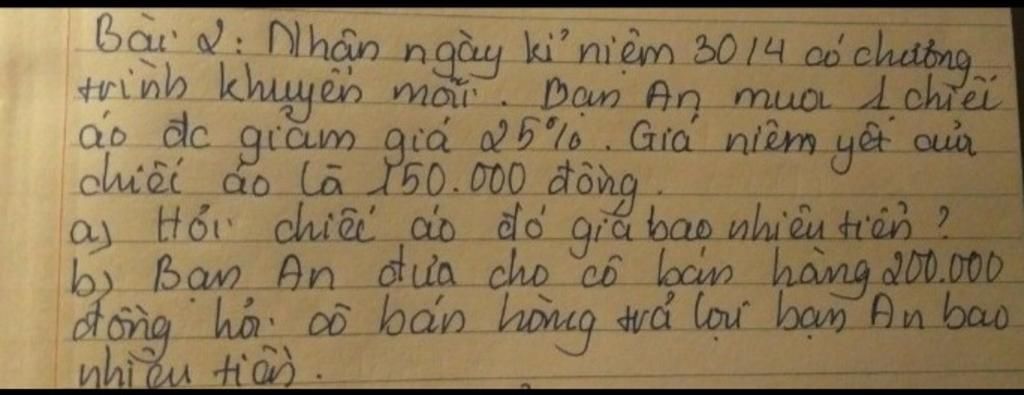 Bài 2: Nhân ngày kỉ niệm 30/4 có chương
trình khuyến mãi. Bạn An mua 1 chiếc
áo đc giảm giá 25%. Giá niêm yết của
chiếc áo là 150.000 đồng.
a) Hỏi chiếc áo đó giá bao nhiêu tiền?
b) Bạn An đưa cho cô bán hàng 200.000
đồng hỏi cô bán hàng trả lại bạn An bao
nhiêu tiền.